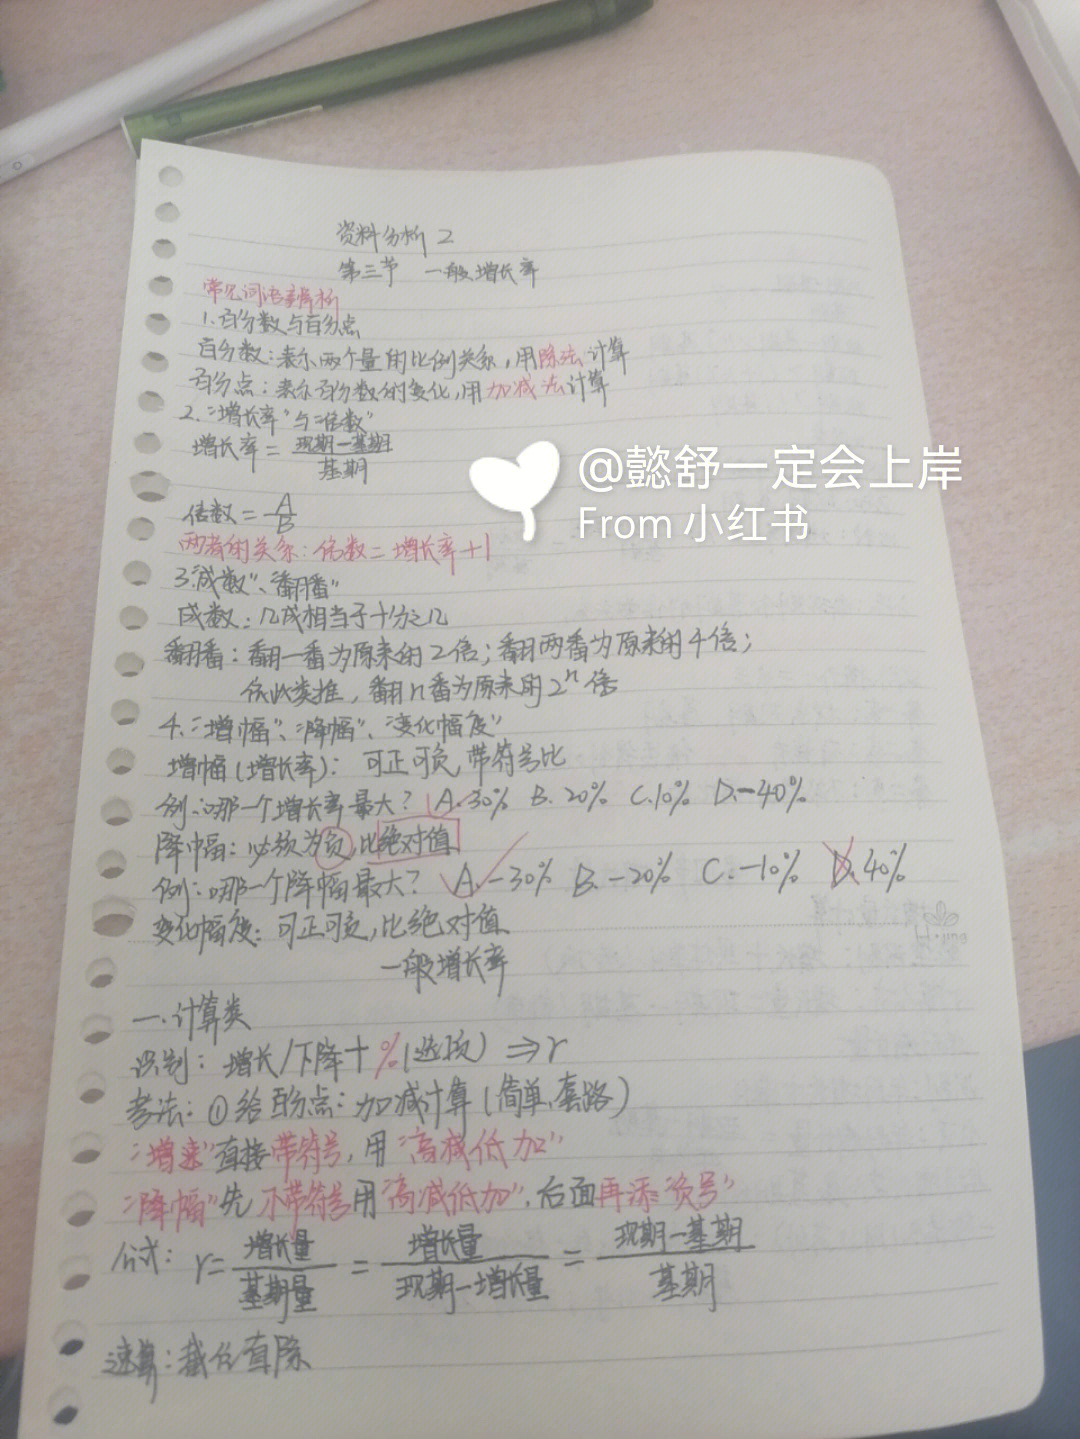 资料分析 2
第三节 一般增长率
常见词语辨析
1.百分数与百分点
百分数：表示两个量的比例关系，用除法计算
百分点：表示百分数的变化，用加减法计算
2.“增长率”与“倍数”
增长率＝现期－基期/基期
@懿舒一定会上岸
From 小红书
倍数＝A/B
两者的关系：倍数＝增长率＋1
3.“成数”、“翻番”
成数：几成相当于十分之几
翻番：翻一番为原来的2倍；翻两番为原来的4倍；
依此类推，翻n番为原来的2ⁿ倍
4.“增幅”、“降幅”、“变化幅度”
增幅(增长率)：可正可负，带符号比
例：哪一个增长率最大？ A.30% B.20% C.10% D.-40%
降幅：必须为负，比绝对值
例：哪一个降幅最大？ A.-30% B.-20% C.-10% D.40%
变化幅度：可正可负，比绝对值
一般增长率
一.计算类
识别：增长/下降＋%(选项) ⇒r
考法：①给百分点：加减计算(简单、套路)
直接带符号，用“高减低加”
“降幅”先不带符号用“高减低加”，后面再添“负号”
公式：r＝增长量/基期量＝增长量/现期－增长量＝现期－基期/基期
速算：截位直除